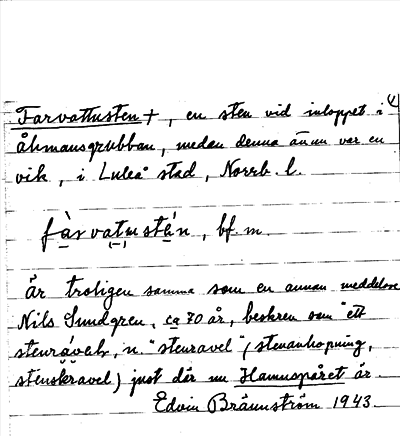 Farvattusten +, en sten vid inloppet i
åhmansgrubban, medan denna ännu var en
vik, i Luleå stad, Norrb. l.
fàrvatustén, bf. m.
Är troligen samma som en annan meddelare
Nils Sundgren, ca 70 år, beskrev som "ett
stenrável, n. "stenravel" (stenanhopning,
stenskravel) just där nu Hamnspåret är.
Edvin Brännström 1943.